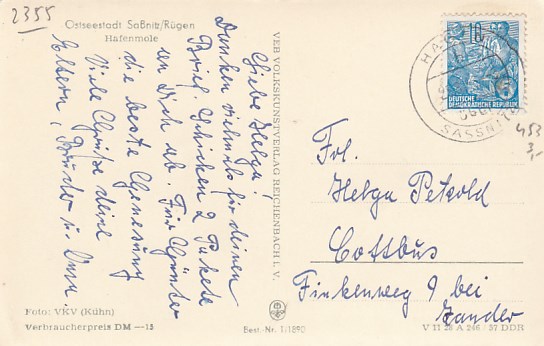 2355
Ostseestadt Saßnitz/Rügen
Hafenmole
Liebe Helga!
Danken vielmals für deinen
Brief. Schicken 2 Pakete
an Dich ab. Für Günter
die beste Genesung
Viele Grüße deine
Eltern, Bruder u.
VEB VOLKSKUNSTVERLAG REICHENBACH I. V.
Foto: VKV (Kühn)
Verbraucherpreis DM —15
Best.-Nr. 1/1890
DEUTSCHE
DEMOKRATISCHE REPUBLIK
SASSNITZ
453
3,-
Frl.
Helga Petzold
Cottbus
Finkenweg 9 bei
Zander
V 11 28 A 246 / 57 DDR